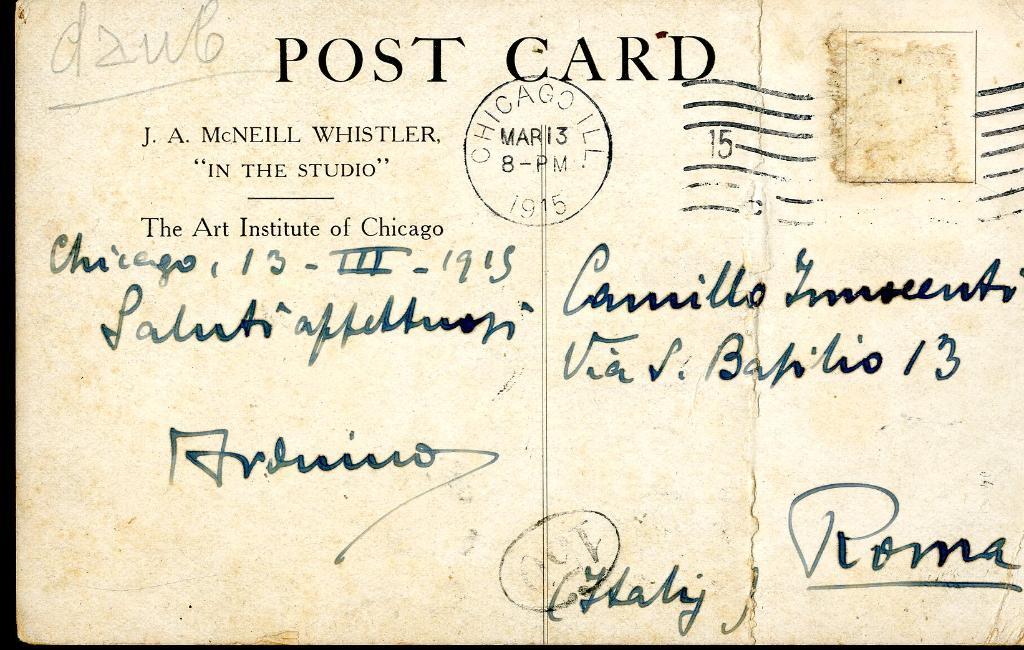 POST CARD
J. A. McNEILL WHISTLER,
"IN THE STUDIO"
The Art Institute of Chicago
CHICAGO ILL.
MAR 13
8-PM
1915
15
Chicago, 13 - III - 1915
Saluti affettuosi
Arduino
Camillo Innocenti
Via S. Basilio 13
Roma
(Italy)